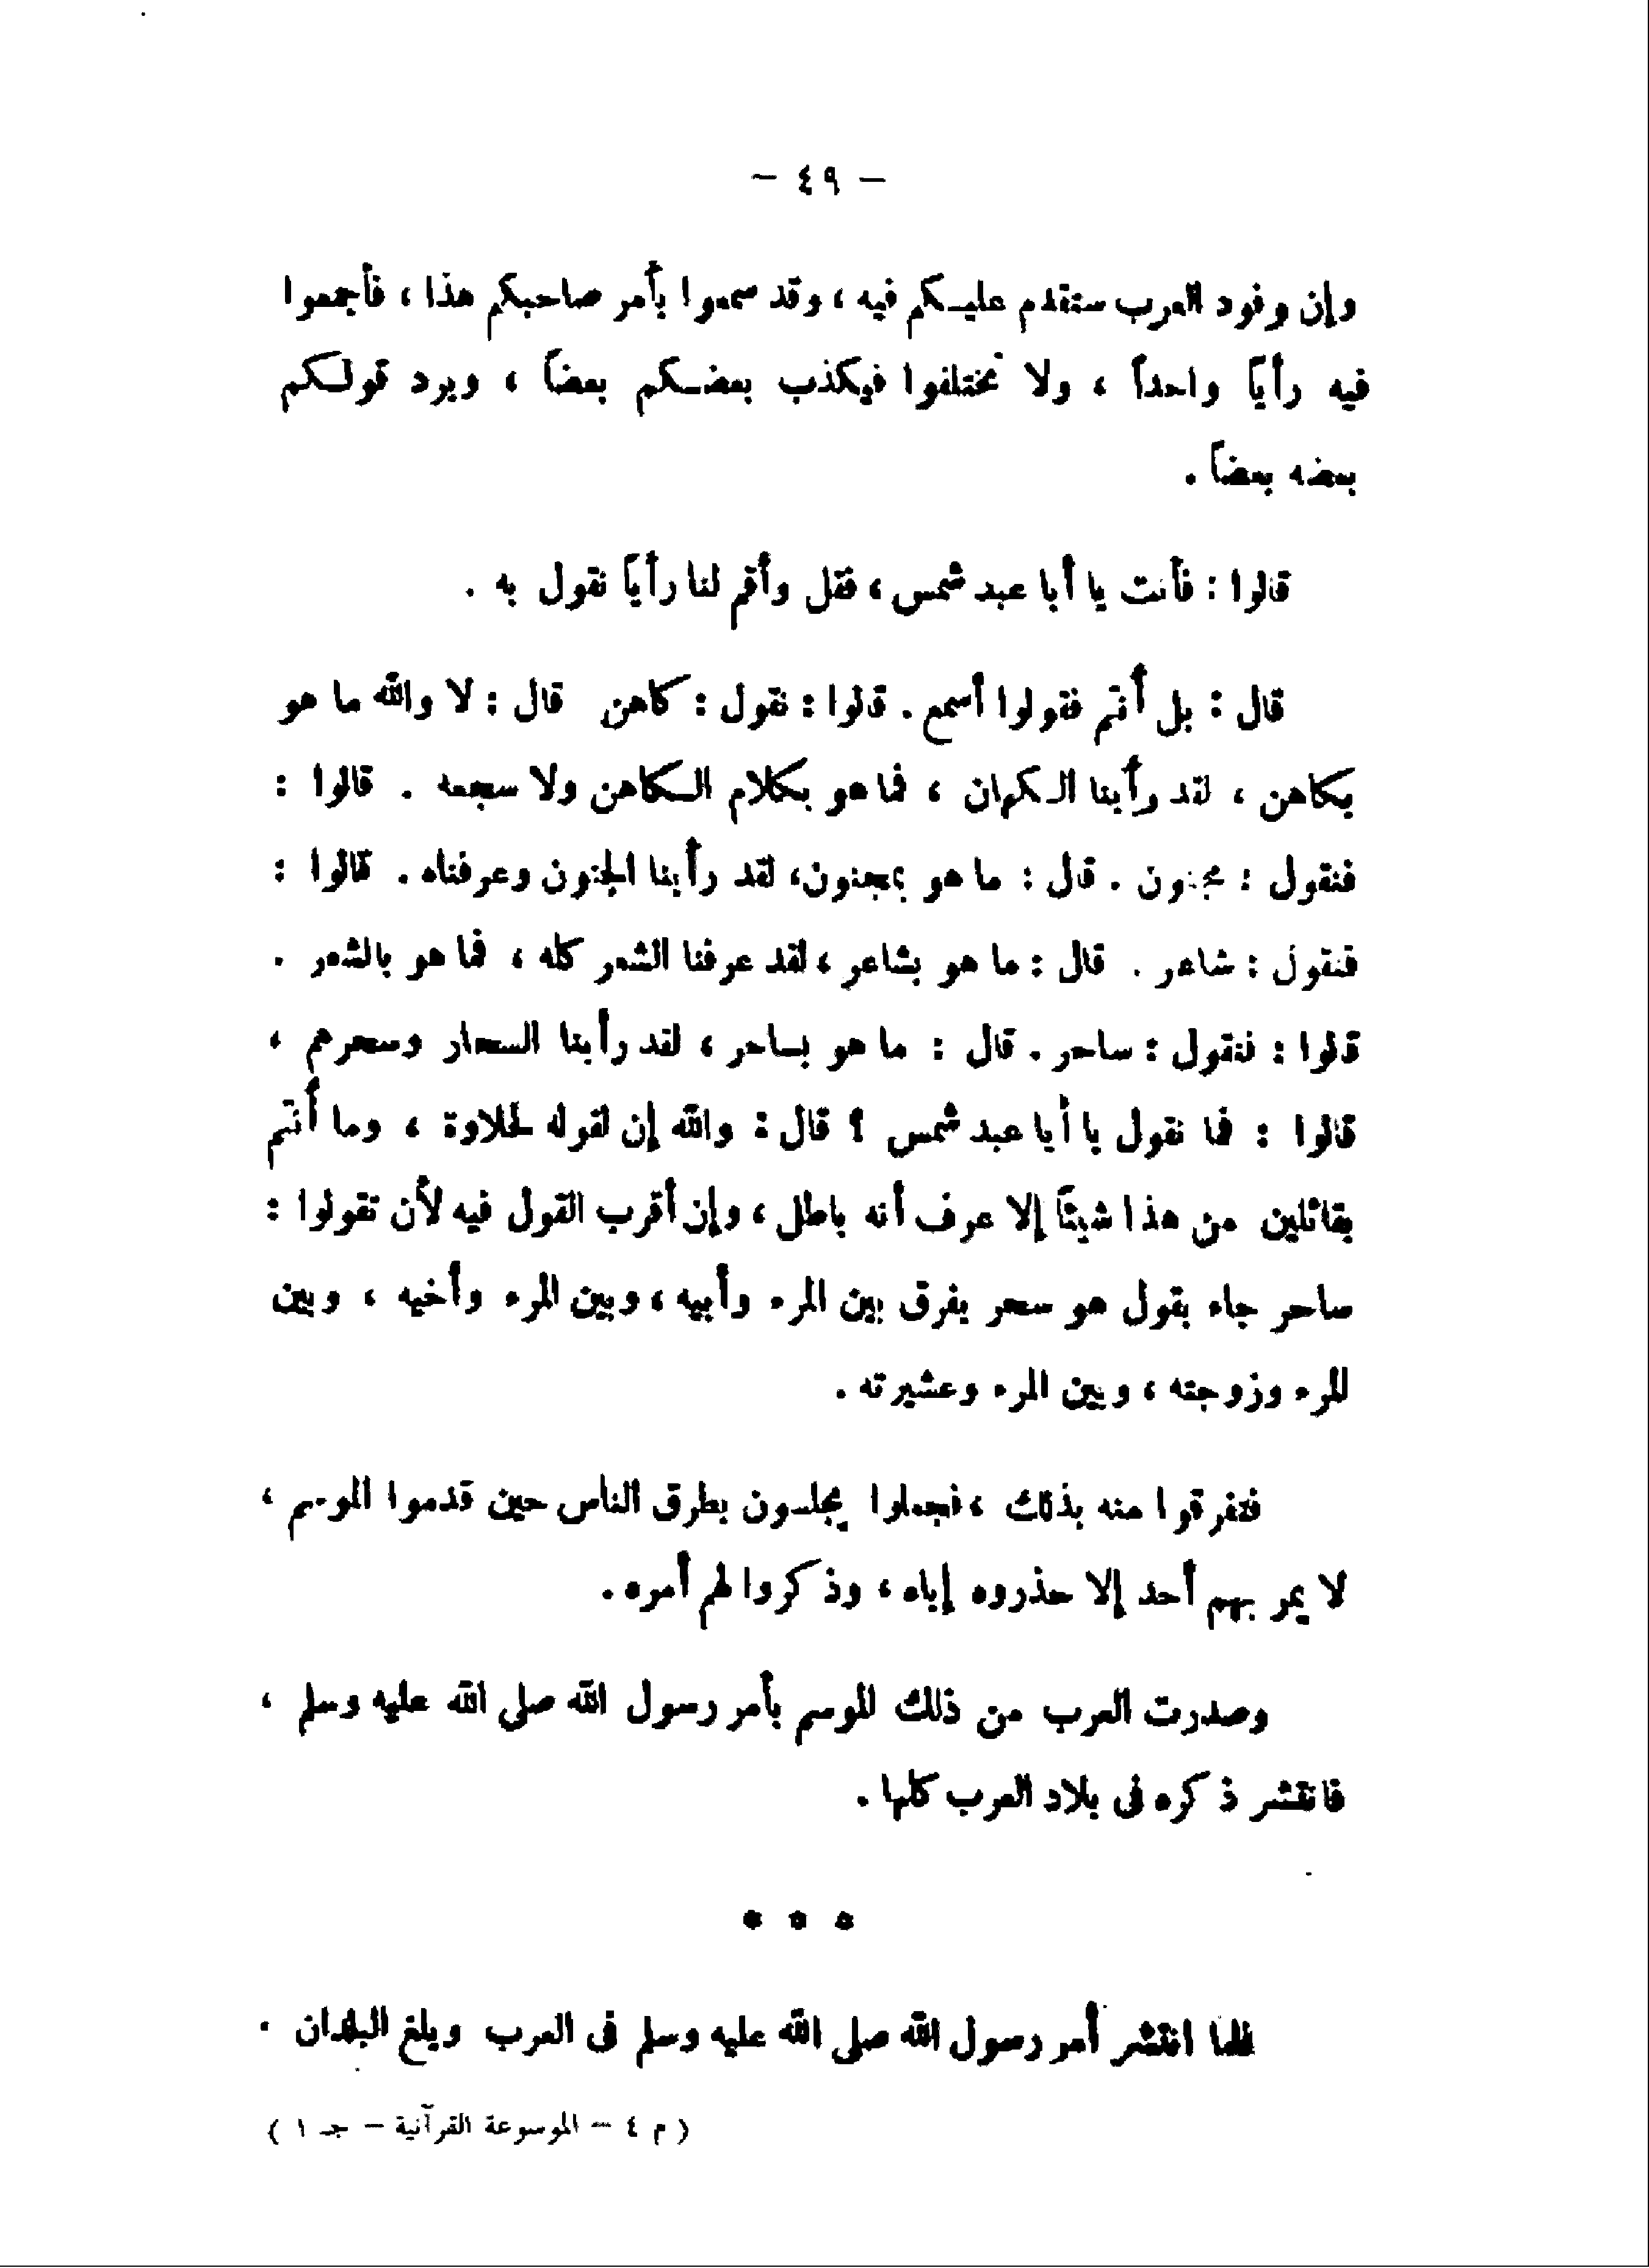 – ٤٩ –
وإن وفود العرب ستقدم عليكم فيه ، وقد سمعوا بأمر صاحبكم هذا ، فأجمعوا
فيه رأياً واحداً ، ولا تختلفوا فيكذب بعضكم بعضاً ، ويرد قولكم
بعضه بعضاً .
قالوا : فأنت يا أبا عبد شمس ، فقل وأقم لنا رأياً نقول به .
قال : بل أنتم فقولوا أسمع . قالوا : نقول : كاهن قال : لا والله ما هو
بكاهن ، لقد رأينا الكهان ، فما هو بكلام الكاهن ولا سجعه . قالوا :
فنقول : مجنون . قال : ما هو بمجنون ، لقد رأينا الجنون وعرفناه . قالوا :
فنقول : شاعر . قال : ما هو بشاعر ، لقد عرفنا الشعر كله ، فما هو بالشعر .
قالوا : فنقول : ساحر . قال : ما هو بساحر ، لقد رأينا السحار وسحرهم ،
قالوا : فما نقول يا أبا عبد شمس ؟ قال : والله إن لقوله لحلاوة ، وما أنتم
بقائلين من هذا شيئاً إلا عرف أنه باطل ، وإن أقرب القول فيه لأن تقولوا :
ساحر جاء بقول هو سحر يفرق بين المرء وأبيه ، وبين المرء وأخيه ، وبين
المرء وزوجته ، وبين المرء وعشيرته .
فتفرقوا منه بذلك ، فجعلوا يجلسون بطرق الناس حين قدموا الموسم ،
لا يمر بهم أحد إلا حذروه إياه ، وذكروا لهم أمره .
وصدرت العرب من ذلك الموسم بأمر رسول الله صلى الله عليه وسلم ،
فانتشر ذكره فى بلاد العرب كلها .
* * *
فلما انتشر أمر رسول الله صلى الله عليه وسلم فى العرب وبلغ البلدان .
( م ٤ – الموسوعة القرآنية – جـ ١ )